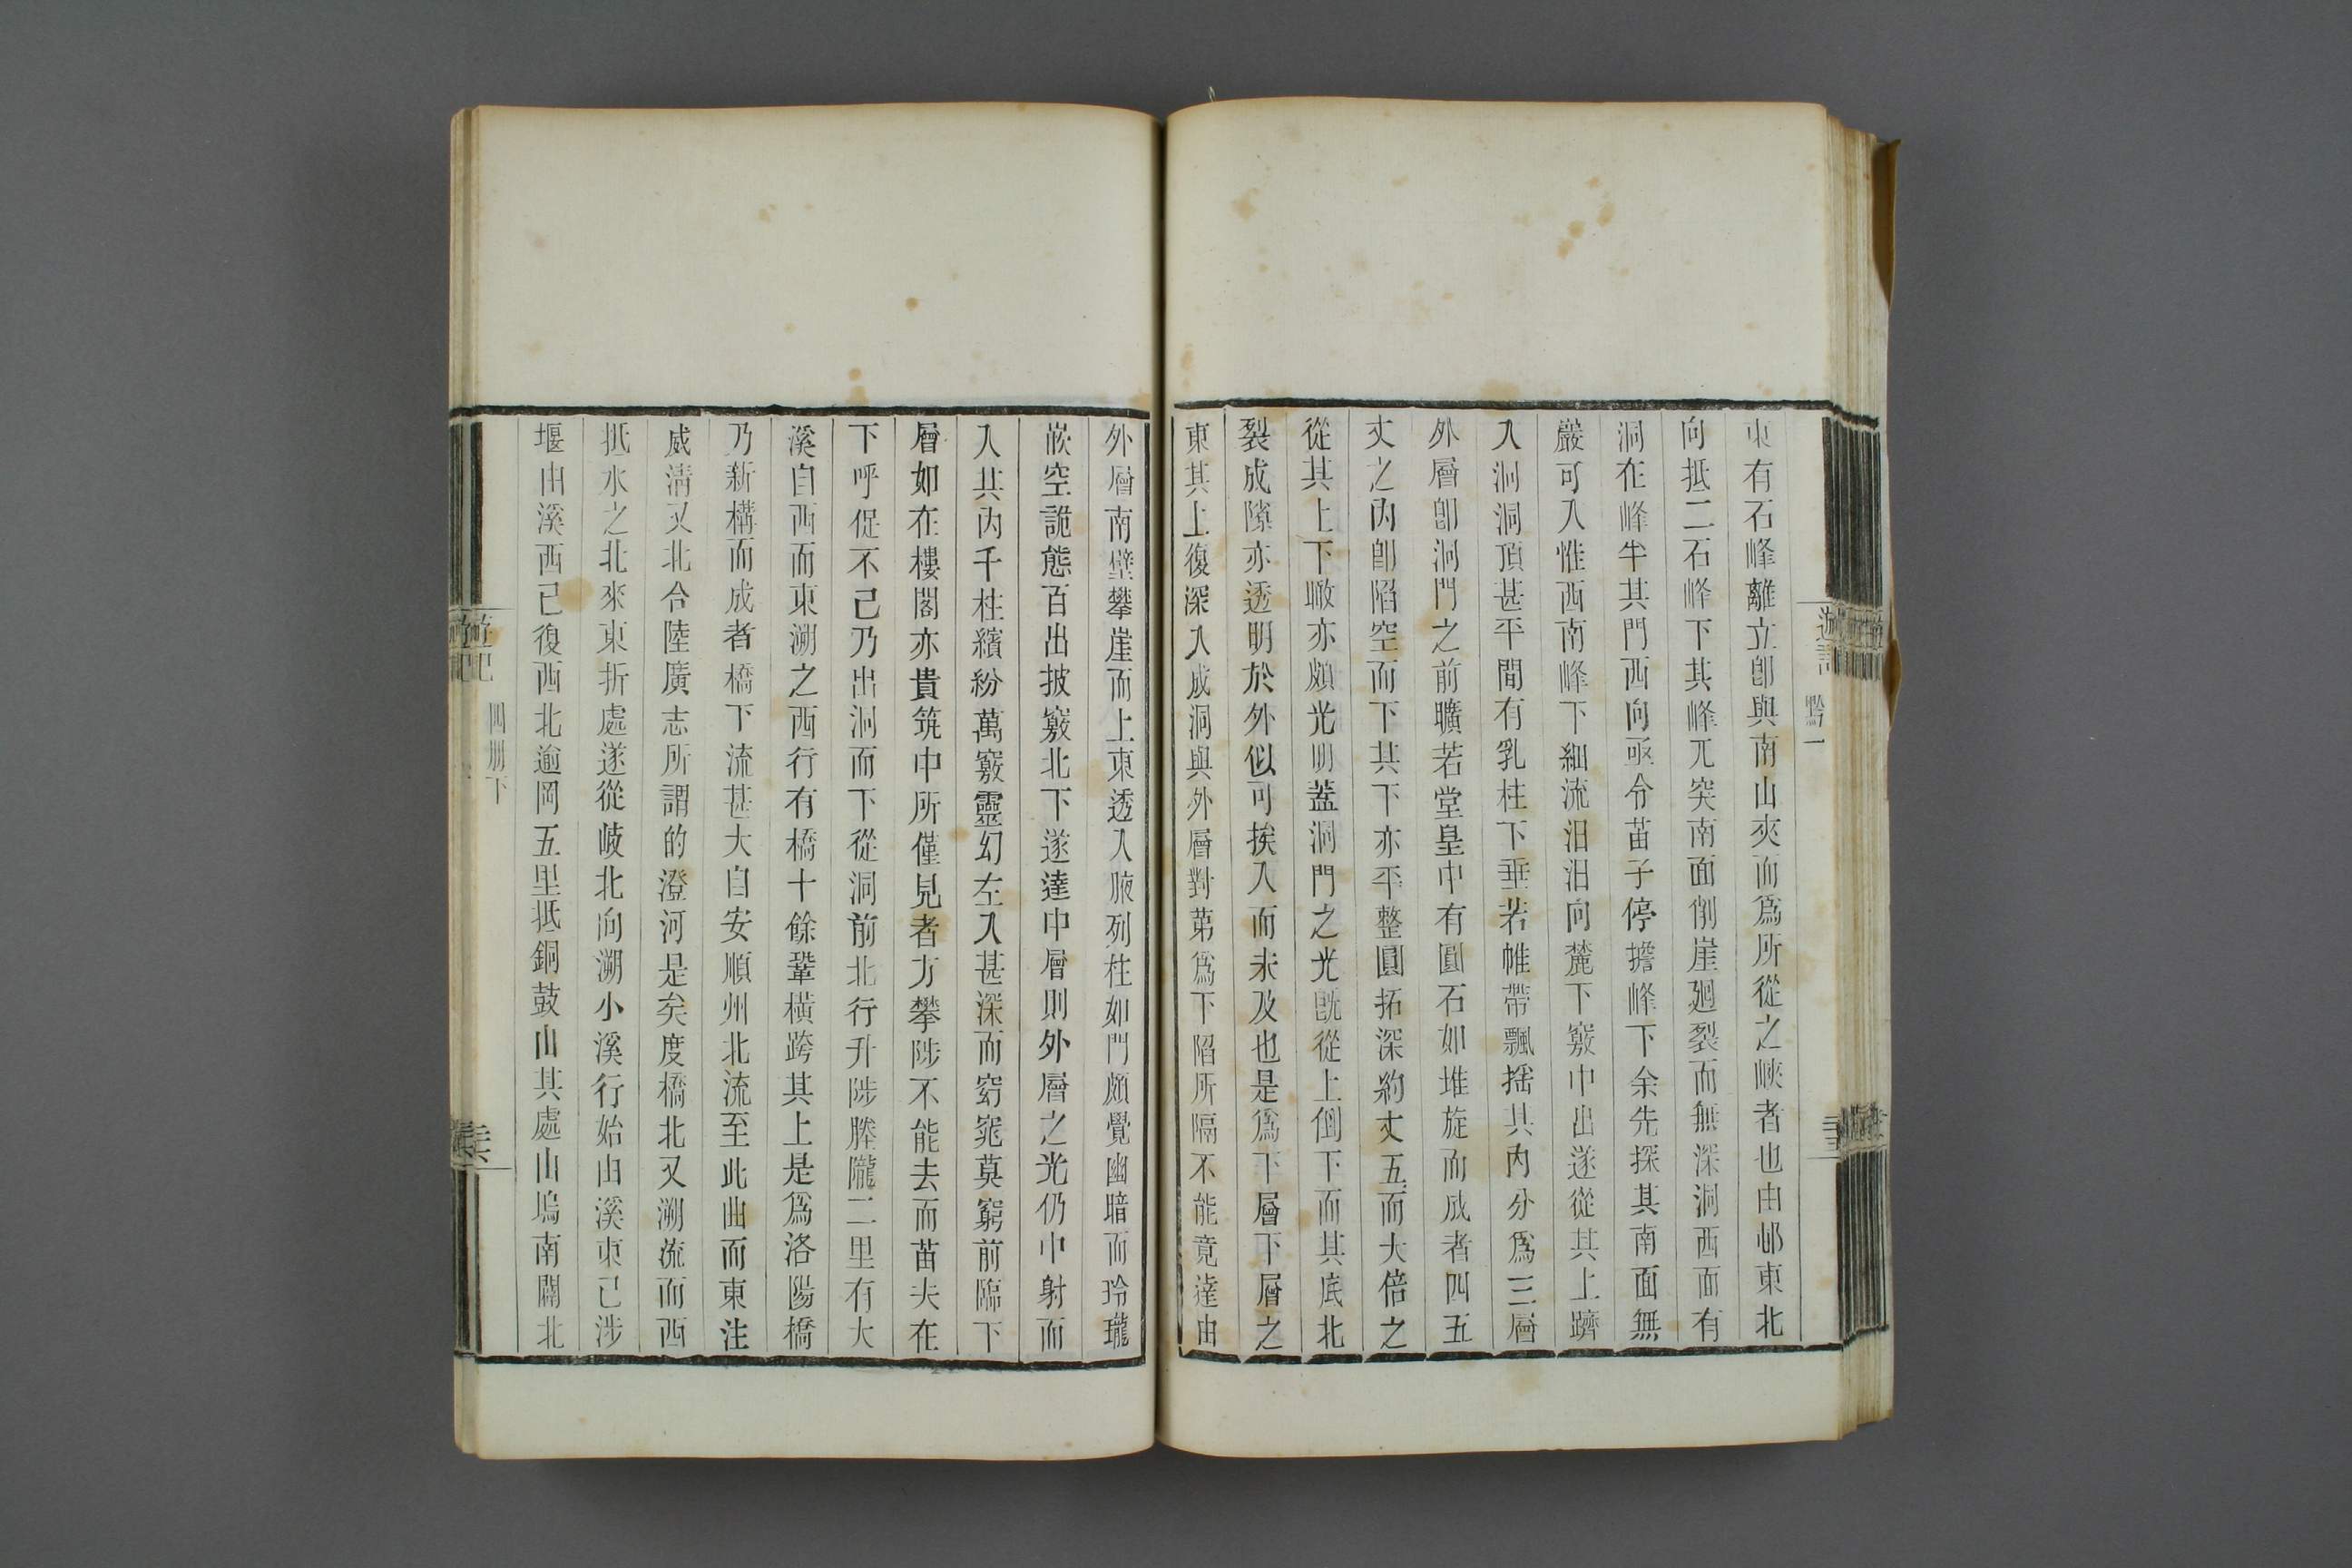 東有石峰離立卽與南山夾而爲所從之峽者也由邨東北
向抵二石峰下其峰兀突南面削崖廻裂而無深洞西面有
洞在峰半其門西向亟令苗子停擔峰下余先探其南面無
巖可入惟西南峰下細流汨汨向麓下竅中出遂從其上躋
入洞洞頂甚平間有乳柱下垂若帷帶飄搖其內分爲三層
外層卽洞門之前曠若堂皇中有圓石如堆旋而成者四五
丈之內卽陷空而下其下亦平整圓拓深約丈五而大倍之
從其上下瞰亦頗光明蓋洞門之光旣從上倒下而其底北
裂成隙亦透明於外似可挨入而未及也是爲下層下層之
東其上復深入成洞與外層對第爲下陷所隔不能竟達由
外層南壁攀崖而上東透入腋列柱如門頗覺幽暗而玲瓏
嵌空詭態百出披竅北下遂達中層則外層之光仍中射而
入其內千柱繽紛萬竅靈幻左入甚深而窈窕莫窮前臨下
層如在樓閣亦貴筑中所僅見者方攀陟不能去而苗夫在
下呼促不已乃出洞而下從洞前北行升陟塍隴二里有大
溪自西而東溯之西行有橋十餘鞏橫跨其上是爲洛陽橋
乃新構而成者橋下流甚大自安順州北流至此曲而東注
威淸又北合陸廣志所謂的澄河是矣度橋北又溯流而西
抵水之北來東折處遂從岐北向溯小溪行始由溪東已涉
堰由溪西已復西北逾岡五里抵銅鼓山其處山塢南闢北
遊記
黔一
遊記
四册下